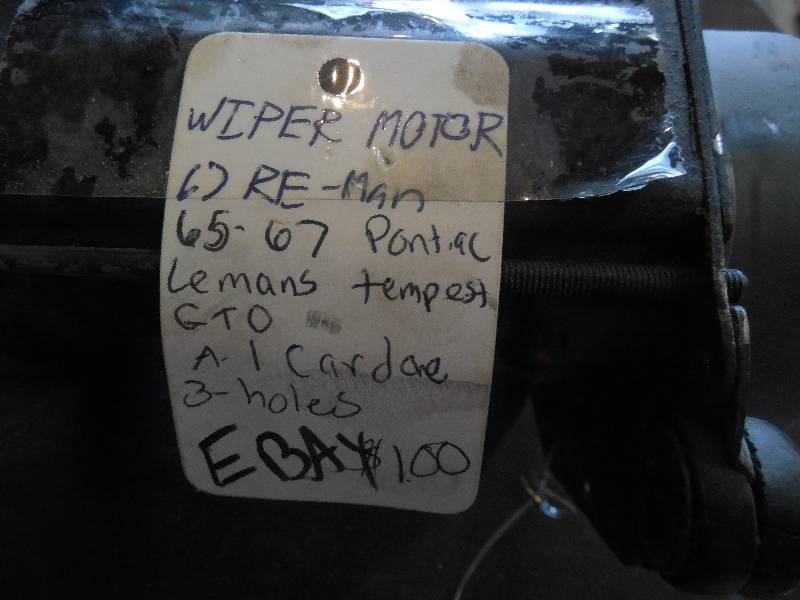 WIPER MOTOR
67 RE-Man
65-67 Pontiac
Lemans tempest
GTO
A-1 Cardone
3-holes
EBAY $1.00